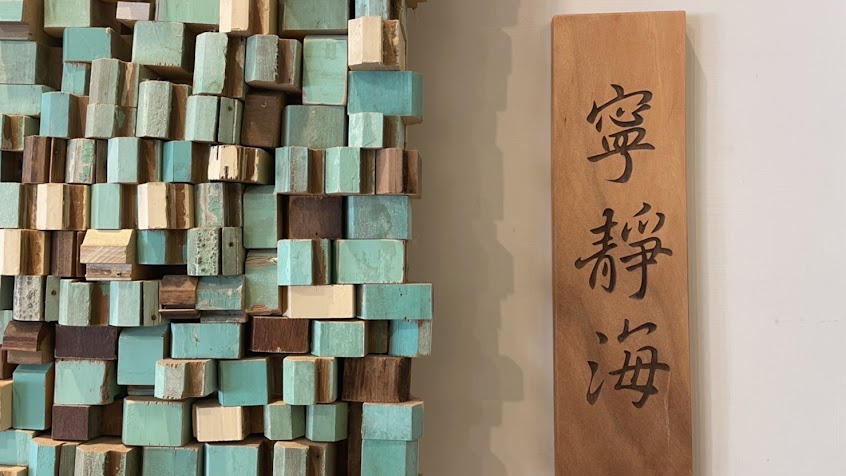 寧靜海